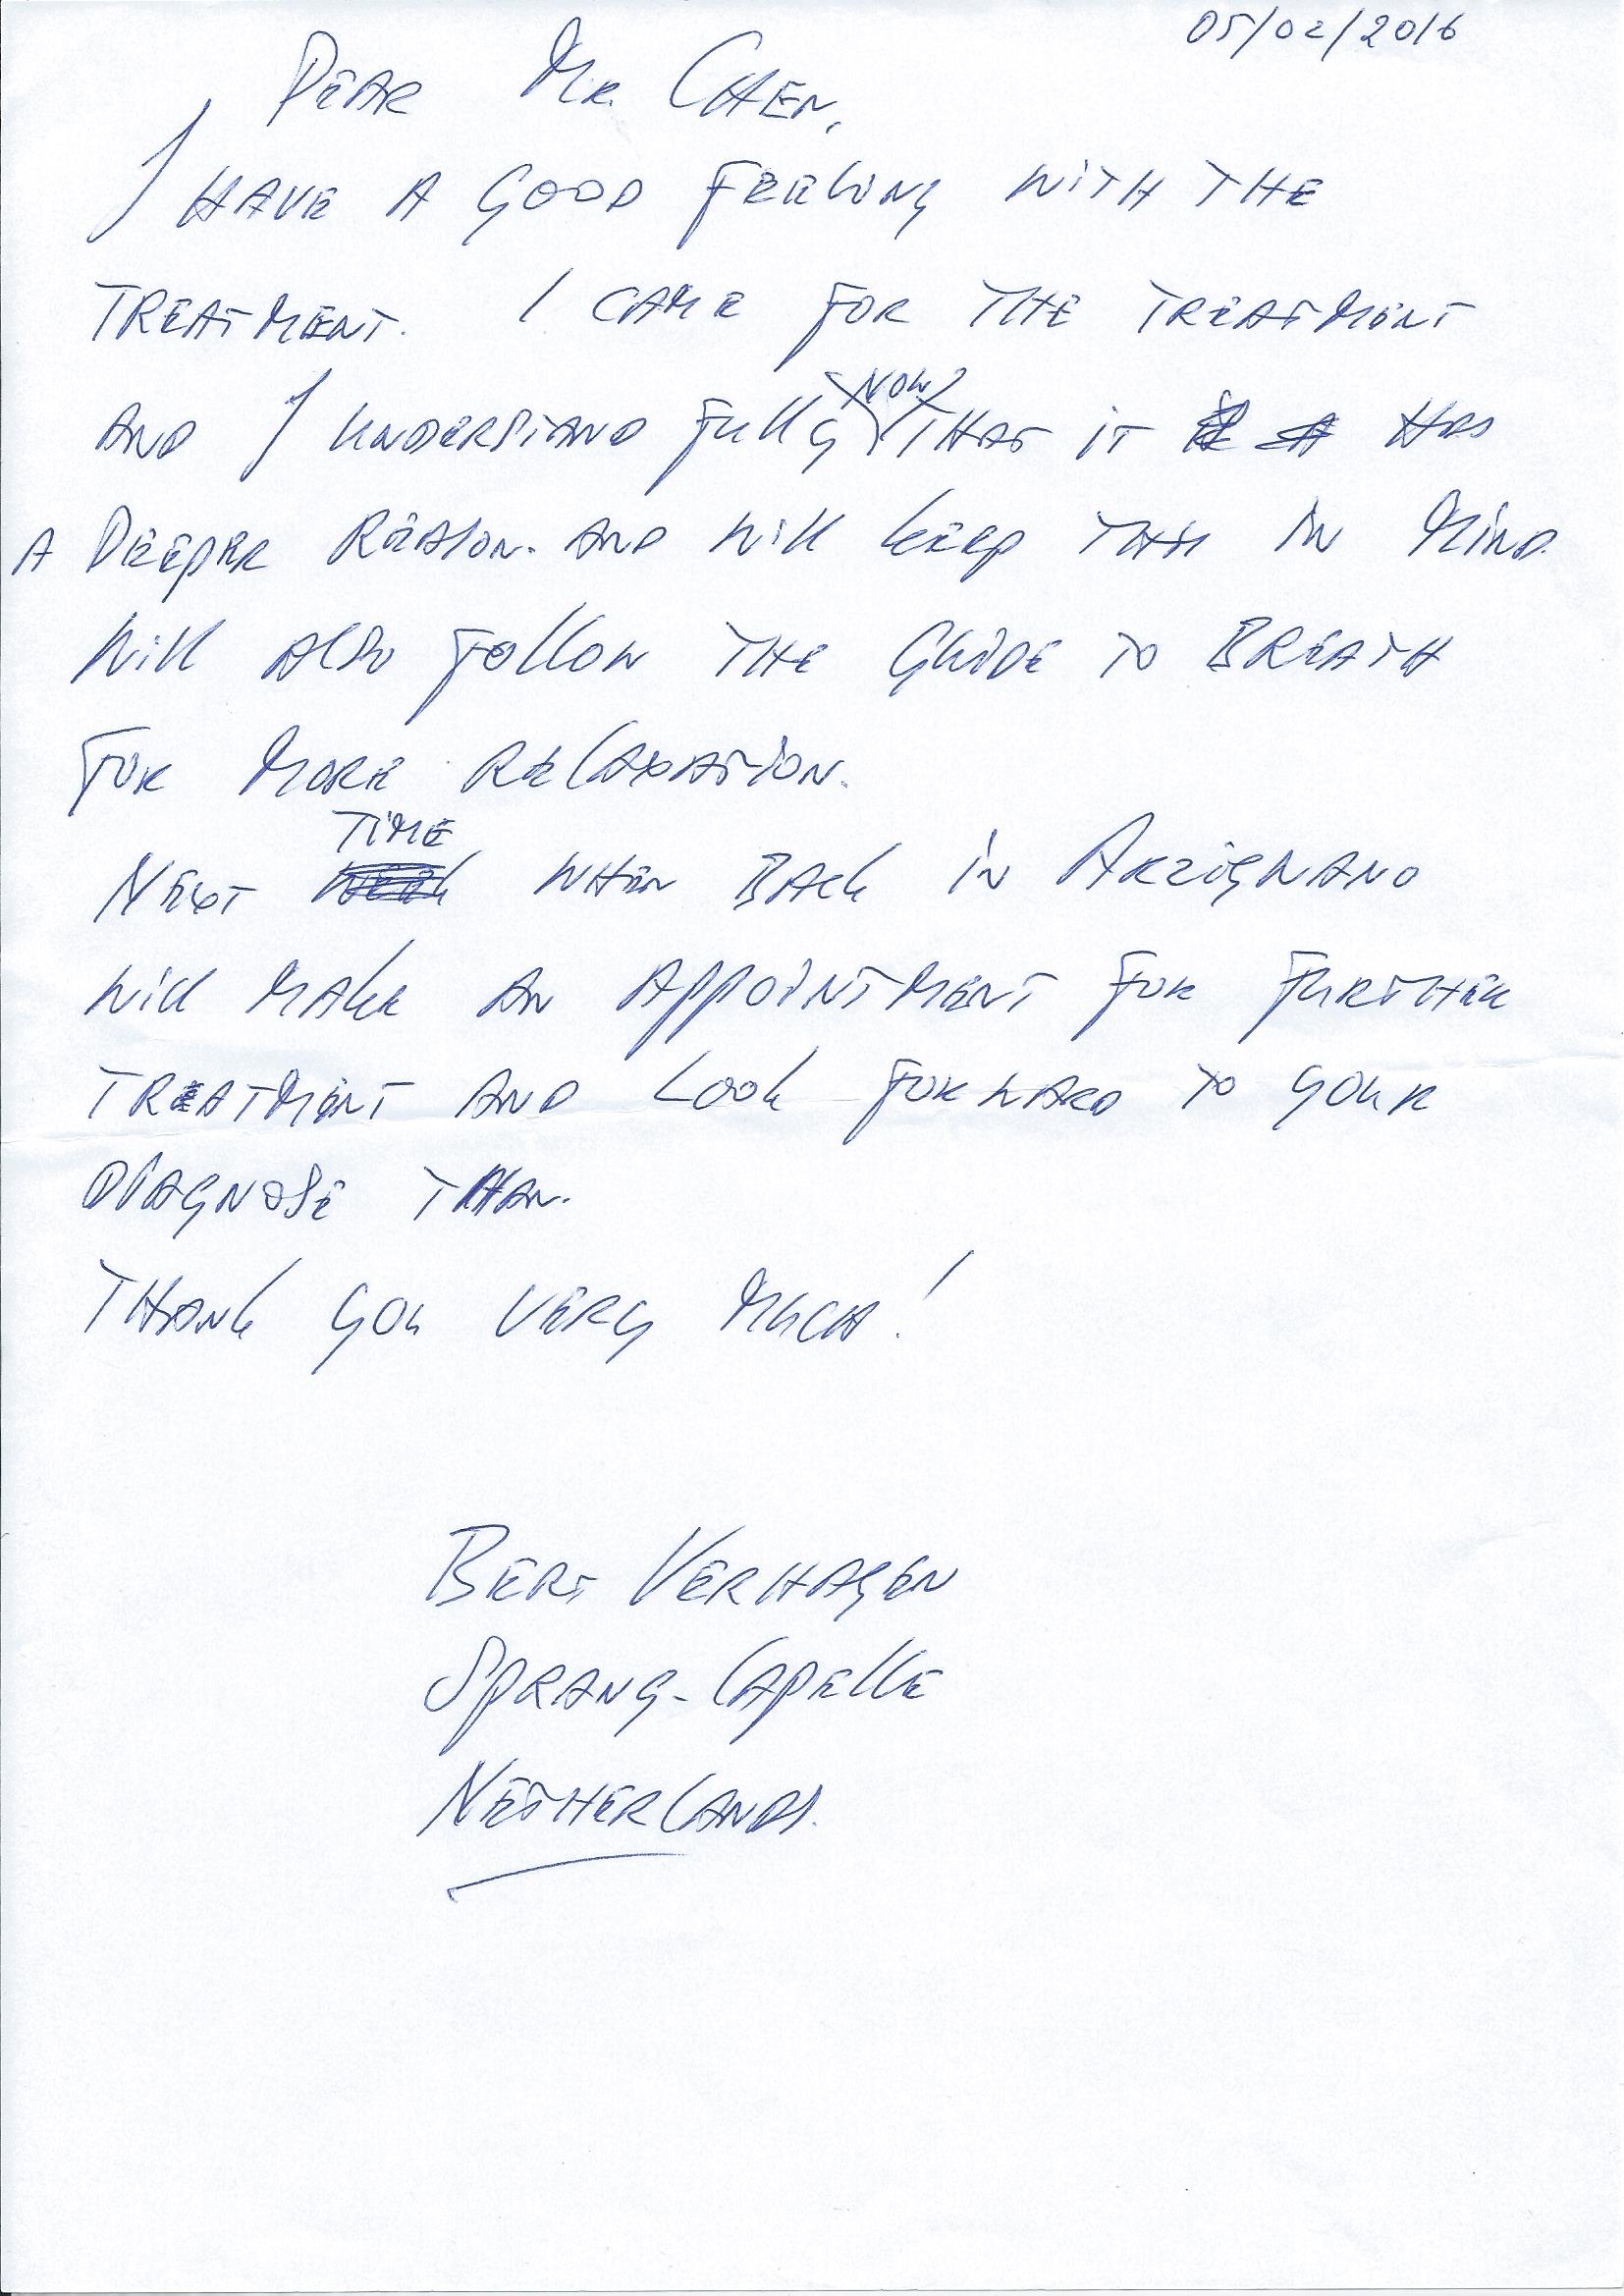 05/02/2016
DEAR MR. CHEN,
I HAVE A GOOD FEELING WITH THE
TREATMENT. I CAME FOR THE TREATMENT
AND I UNDERSTAND FULLY NOW THAT IT HAS
A DEEPER REASON. AND WILL KEEP THIS IN MIND.
WILL ALSO FOLLOW THE GUIDE TO BREATH
FOR MORE RELAXATION.
NEXT TIME WHEN BACK IN ARZIGNANO
WILL MAKE AN APPOINTMENT FOR FURTHER
TREATMENT AND LOOK FORWARD TO YOUR
DIAGNOSE THAN.
THANK YOU VERY MUCH!
BERT VERHAGEN
SPRANG-CAPELLE
NETHERLANDS.